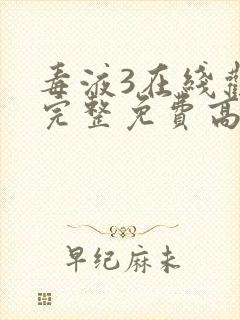 毒液3在线
完整免費高
早纪麻未